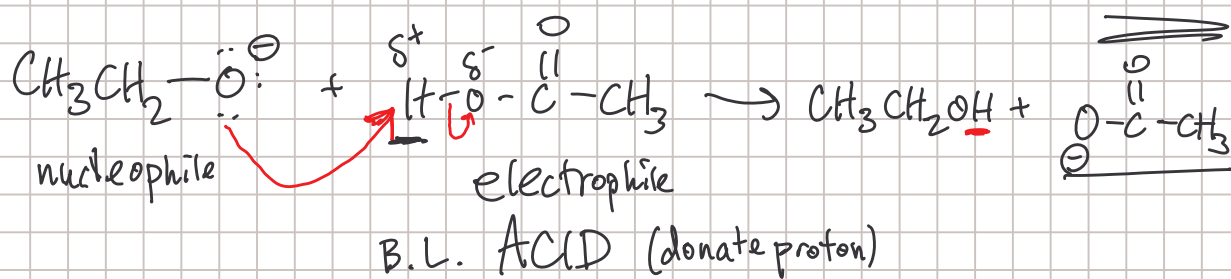 O
δ+ δ- || O
CH3CH2—O:⊖ + H-O-C-CH3 → CH3CH2OH + ||
O-C-CH3
⊖
nucleophile electrophile
B.L. ACID (donate proton)